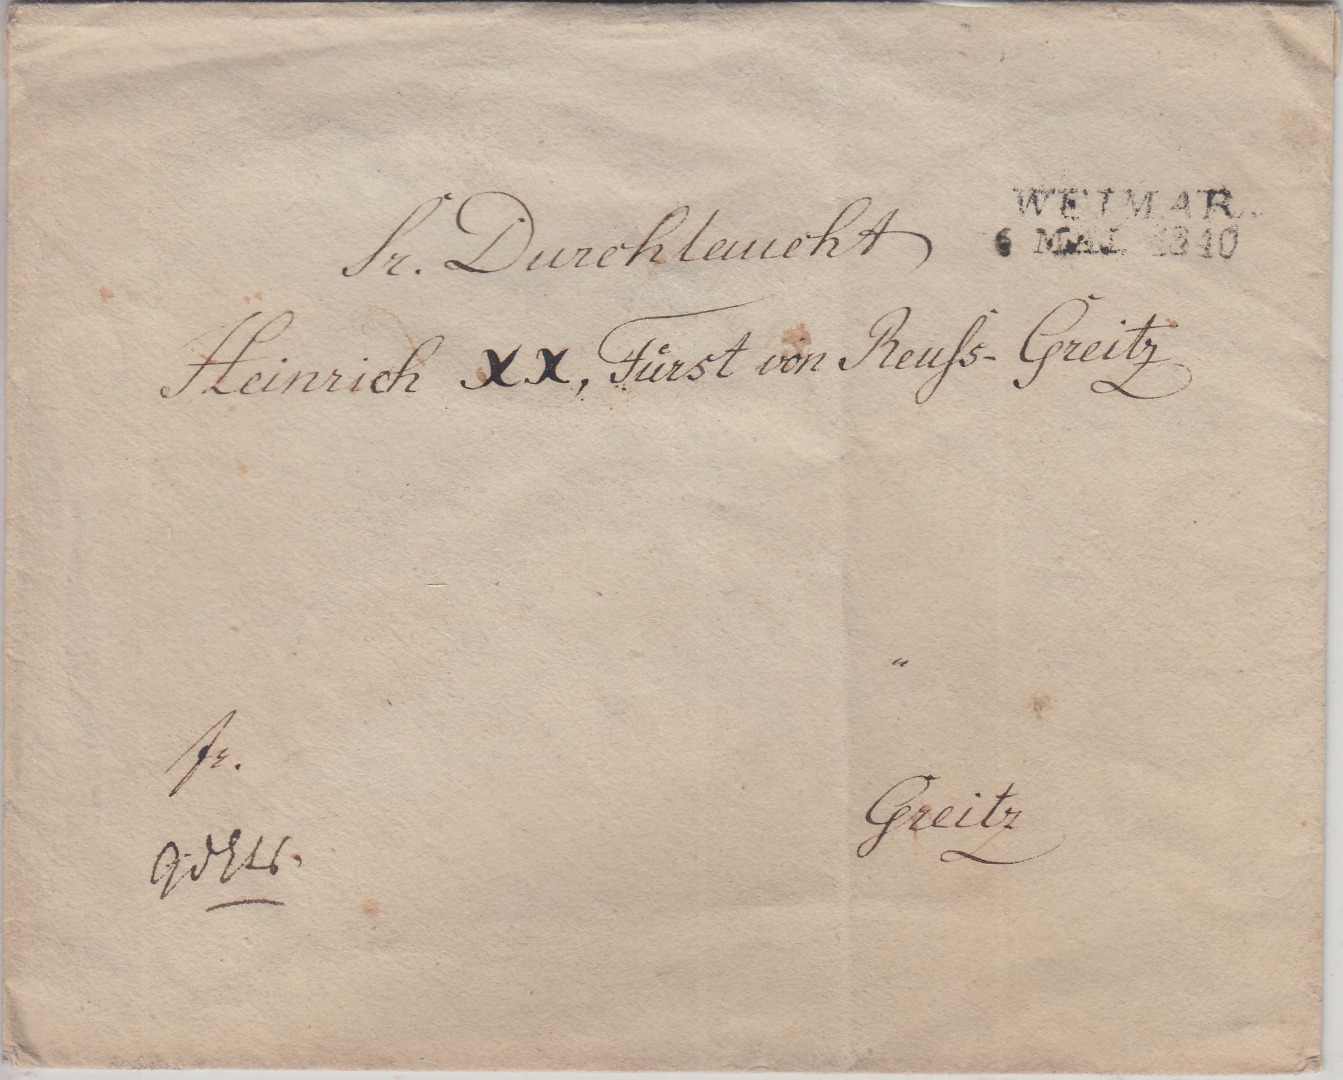 WEIMAR.
6 MAI 1840
Sr. Durchlaucht
Heinrich XX, Fürst von Reuſs- Greitz
fr.
Greitz